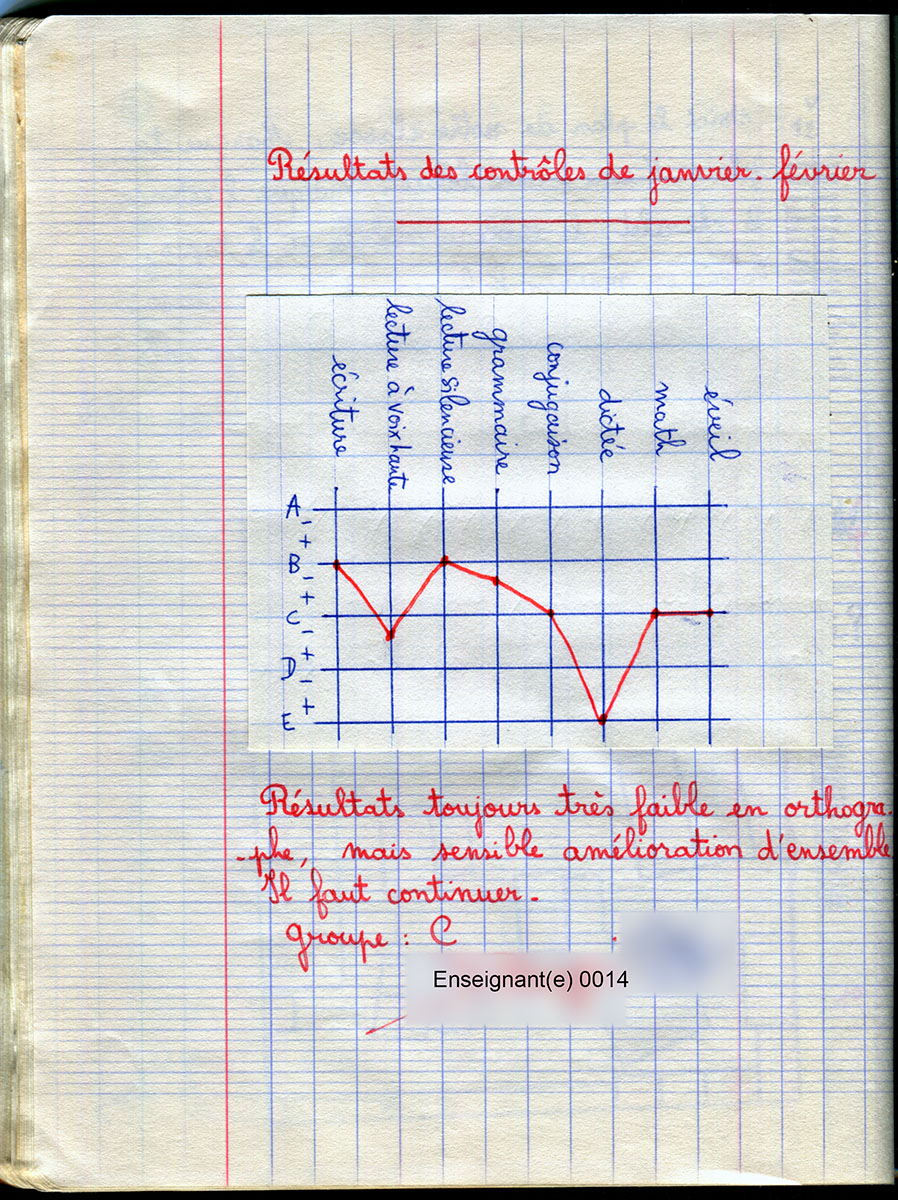 Résultats des contrôles de janvier. février
écriture
lecture à voix haute
lecture silencieuse
grammaire
conjugaison
dictée
math
éveil
A
-
+
B
-
+
C
-
+
D
-
+
E
Résultats toujours très faible en orthogra-
-phe, mais sensible amélioration d'ensemble
Il faut continuer.
groupe : C
Enseignant(e) 0014